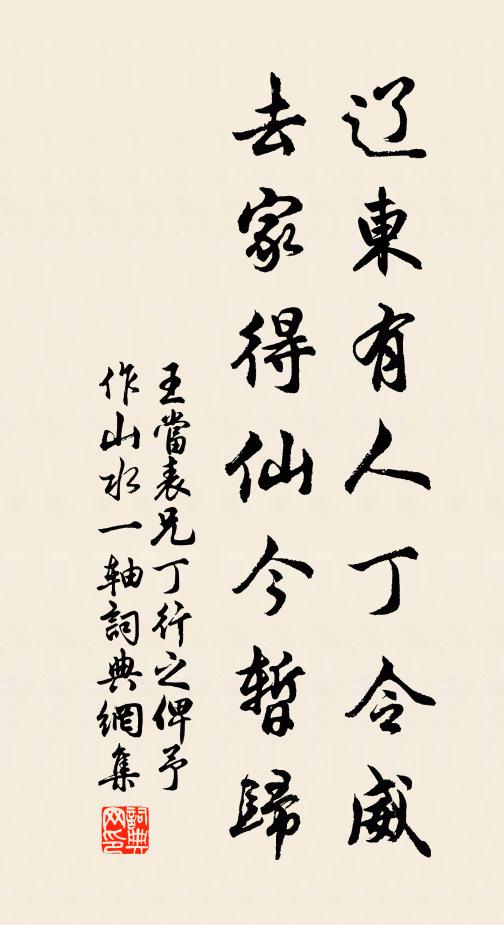 辽東有人丁令威
去家得仙今暫歸
王當表兄丁行之俾予
作山水一軸詞典網集
詞典
网印